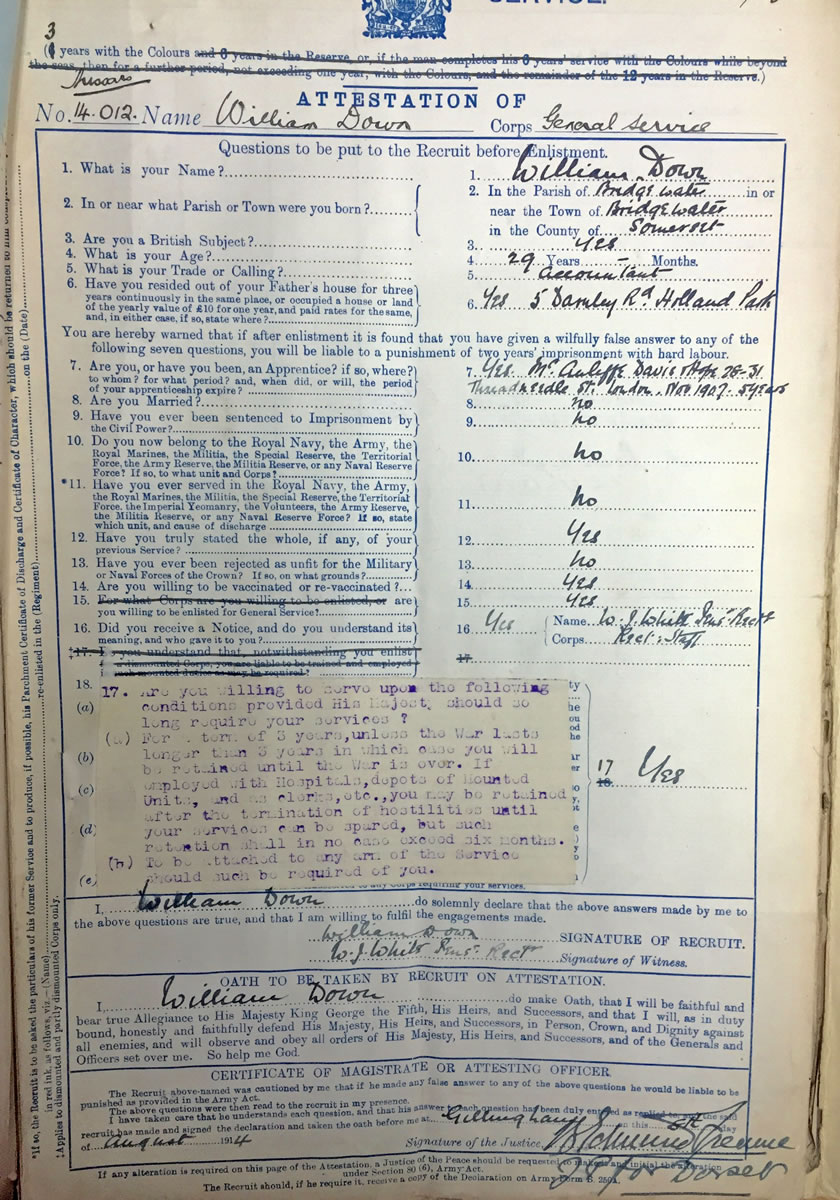 SERVICE.
3
(6 years with the Colours and 6 years in the Reserve, or, if the man completes his 6 years' service with the Colours while beyond
the seas, then for a further period, not exceeding one year, with the Colours, and the remainder of the 12 years in the Reserve.)
Hussars
ATTESTATION OF
No. 14012. Name William Down Corps General Service
Questions to be put to the Recruit before Enlistment.
1. What is your Name? 1. William Down
2. In or near what Parish or Town were you born? 2. In the Parish of Bridgewater in or
near the Town of Bridgewater
in the County of Somerset
3. Are you a British Subject? 3. Yes
4. What is your Age? 4 29 Years - Months.
5. What is your Trade or Calling? 5. Accountant
6. Have you resided out of your Father's house for three
years continuously in the same place, or occupied a house or land
of the yearly value of £10 for one year, and paid rates for the same,
and, in either case, if so, state where? 6. Yes 5 Darnley Rd Holland Park
You are hereby warned that if after enlistment it is found that you have given a wilfully false answer to any of the
following seven questions, you will be liable to a punishment of two years' imprisonment with hard labour.
7. Are you, or have you been, an Apprentice? if so, where? 7. Yes Mc Auliffe Davis & Hope 28-31
to whom? for what period? and, when did, or will, the period
of your apprenticeship expire? Threadneedle St. London. Nov 1907 - 5 years
8. Are you Married? 8. No
9. Have you ever been sentenced to Imprisonment by
the Civil Power? 9. No
10. Do you now belong to the Royal Navy, the Army, the
Royal Marines, the Militia, the Special Reserve, the Territorial
Force, the Army Reserve, the Militia Reserve, or any Naval Reserve
Force? If so, to what unit and Corps? 10. No
*11. Have you ever served in the Royal Navy, the Army,
the Royal Marines, the Militia, the Special Reserve, the Territorial
Force, the Imperial Yeomanry, the Volunteers, the Army Reserve,
the Militia Reserve, or any Naval Reserve Force? If so, state
which unit, and cause of discharge 11. No
12. Have you truly stated the whole, if any, of your
previous Service? 12. Yes
13. Have you ever been rejected as unfit for the Military
or Naval Forces of the Crown? If so, on what grounds? 13. No
14. Are you willing to be vaccinated or re-vaccinated? 14. Yes
15. For what Corps are you willing to be enlisted, or are
you willing to be enlisted for General Service? 15. Yes
16. Did you receive a Notice, and do you understand its
meaning, and who gave it to you? 16 Yes Name W. J. White Recr
Corps Recr. Staff
‡17. Do you understand that, notwithstanding you enlist
in a dismounted Corps, you are liable to be trained and employed
on such mounted duties as may be required? 17
18.
17. Are you willing to serve upon the following
(a) conditions provided His Majesty should so
long require your services?
(a) For a term of 3 years, unless the War lasts
(b) longer than 3 years in which case you will
be retained until the War is over. If
(c) employed with Hospitals, depots of Mounted
Units, and as clerks, etc., you may be retained
after the termination of hostilities until
(d) your services can be spared, but such
retention shall in no case exceed six months.
(b) To be attached to any arm of the Service
(e) should such be required of you.
17 18. Yes
to any Corps requiring your services.
I, William Down do solemnly declare that the above answers made by me to
the above questions are true, and that I am willing to fulfil the engagements made.
William Down SIGNATURE OF RECRUIT.
W. J. White Recr Signature of Witness.
OATH TO BE TAKEN BY RECRUIT ON ATTESTATION.
I, William Down do make Oath, that I will be faithful and
bear true Allegiance to His Majesty King George the Fifth, His Heirs, and Successors, and that I will, as in duty
bound, honestly and faithfully defend His Majesty, His Heirs, and Successors, in Person, Crown, and Dignity against
all enemies, and will observe and obey all orders of His Majesty, His Heirs, and Successors, and of the Generals and
Officers set over me. So help me God.
CERTIFICATE OF MAGISTRATE OR ATTESTING OFFICER.
The Recruit above-named was cautioned by me that if he made any false answer to any of the above questions he would be liable to be
punished as provided in the Army Act.
The above questions were then read to the recruit in my presence.
I have taken care that he understands each question, and that his answer to each question has been duly entered as replied to, and the said
recruit has made and signed the declaration and taken the oath before me at Gillingham on this day
of August 1914 Signature of the Justice
JP for Dorset
If any alteration is required on this page of the Attestation, a Justice of the Peace should be requested to make it and initial the alteration
under Section 80 (6), Army Act.
The Recruit should, if he require it, receive a copy of the Declaration on Army Form B. 250A.
*If so, the Recruit is to be asked the particulars of his former Service and to produce, if possible, his Parchment Certificate of Discharge and Certificate of Character, which should be returned to him
in red ink, as follows, viz.—(Name) re-enlisted in the (Regiment) on the (Date)
‡Applies to dismounted and partly dismounted Corps only.